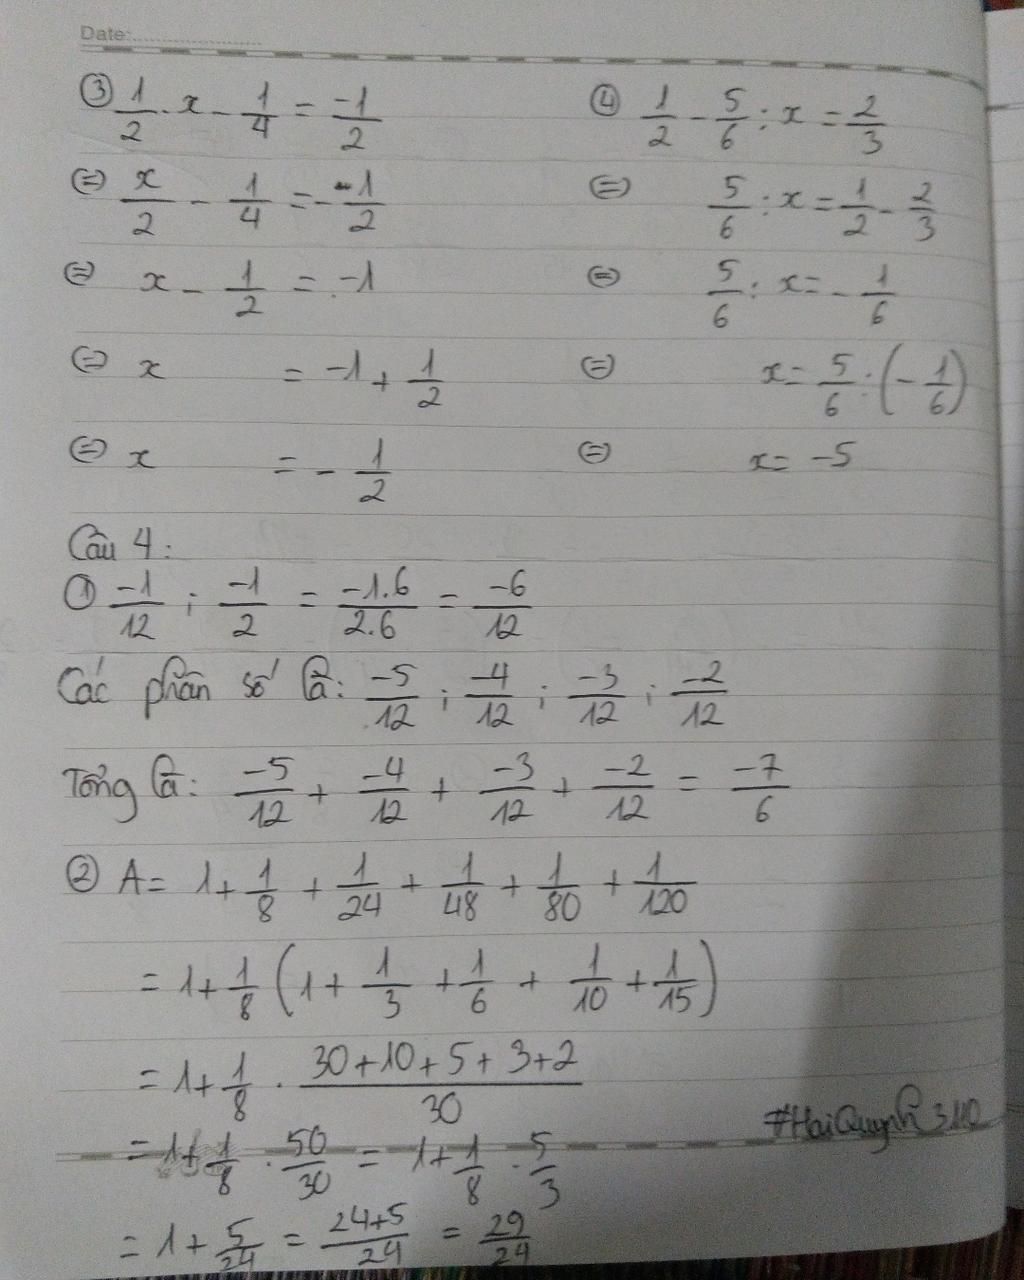 Date:
③ 1/2 . x - 1/4 = -1/2
⇔ x/2 - 1/4 = -1/2
⇔ x - 1/2 = -1
⇔ x = -1 + 1/2
⇔ x = - 1/2
④ 1/2 - 5/6 : x = 2/3
⇔ 5/6 : x = 1/2 - 2/3
⇔ 5/6 : x = - 1/6
⇔ x = 5/6 : (- 1/6)
⇔ x = -5
Câu 4:
① -1/12 ; -1/2 = -1.6/2.6 = -6/12
Các phân số là: -5/12 ; -4/12 ; -3/12 ; -2/12
Tổng là: -5/12 + -4/12 + -3/12 + -2/12 = -7/6
② A = 1 + 1/8 + 1/24 + 1/48 + 1/80 + 1/120
= 1 + 1/8 (1 + 1/3 + 1/6 + 1/10 + 1/15)
= 1 + 1/8 . 30+10+5+3+2/30
#HaiQuynh3110
= 1 + 1/8 . 50/30 = 1 + 1/8 . 5/3
= 1 + 5/24 = 24+5/24 = 29/24